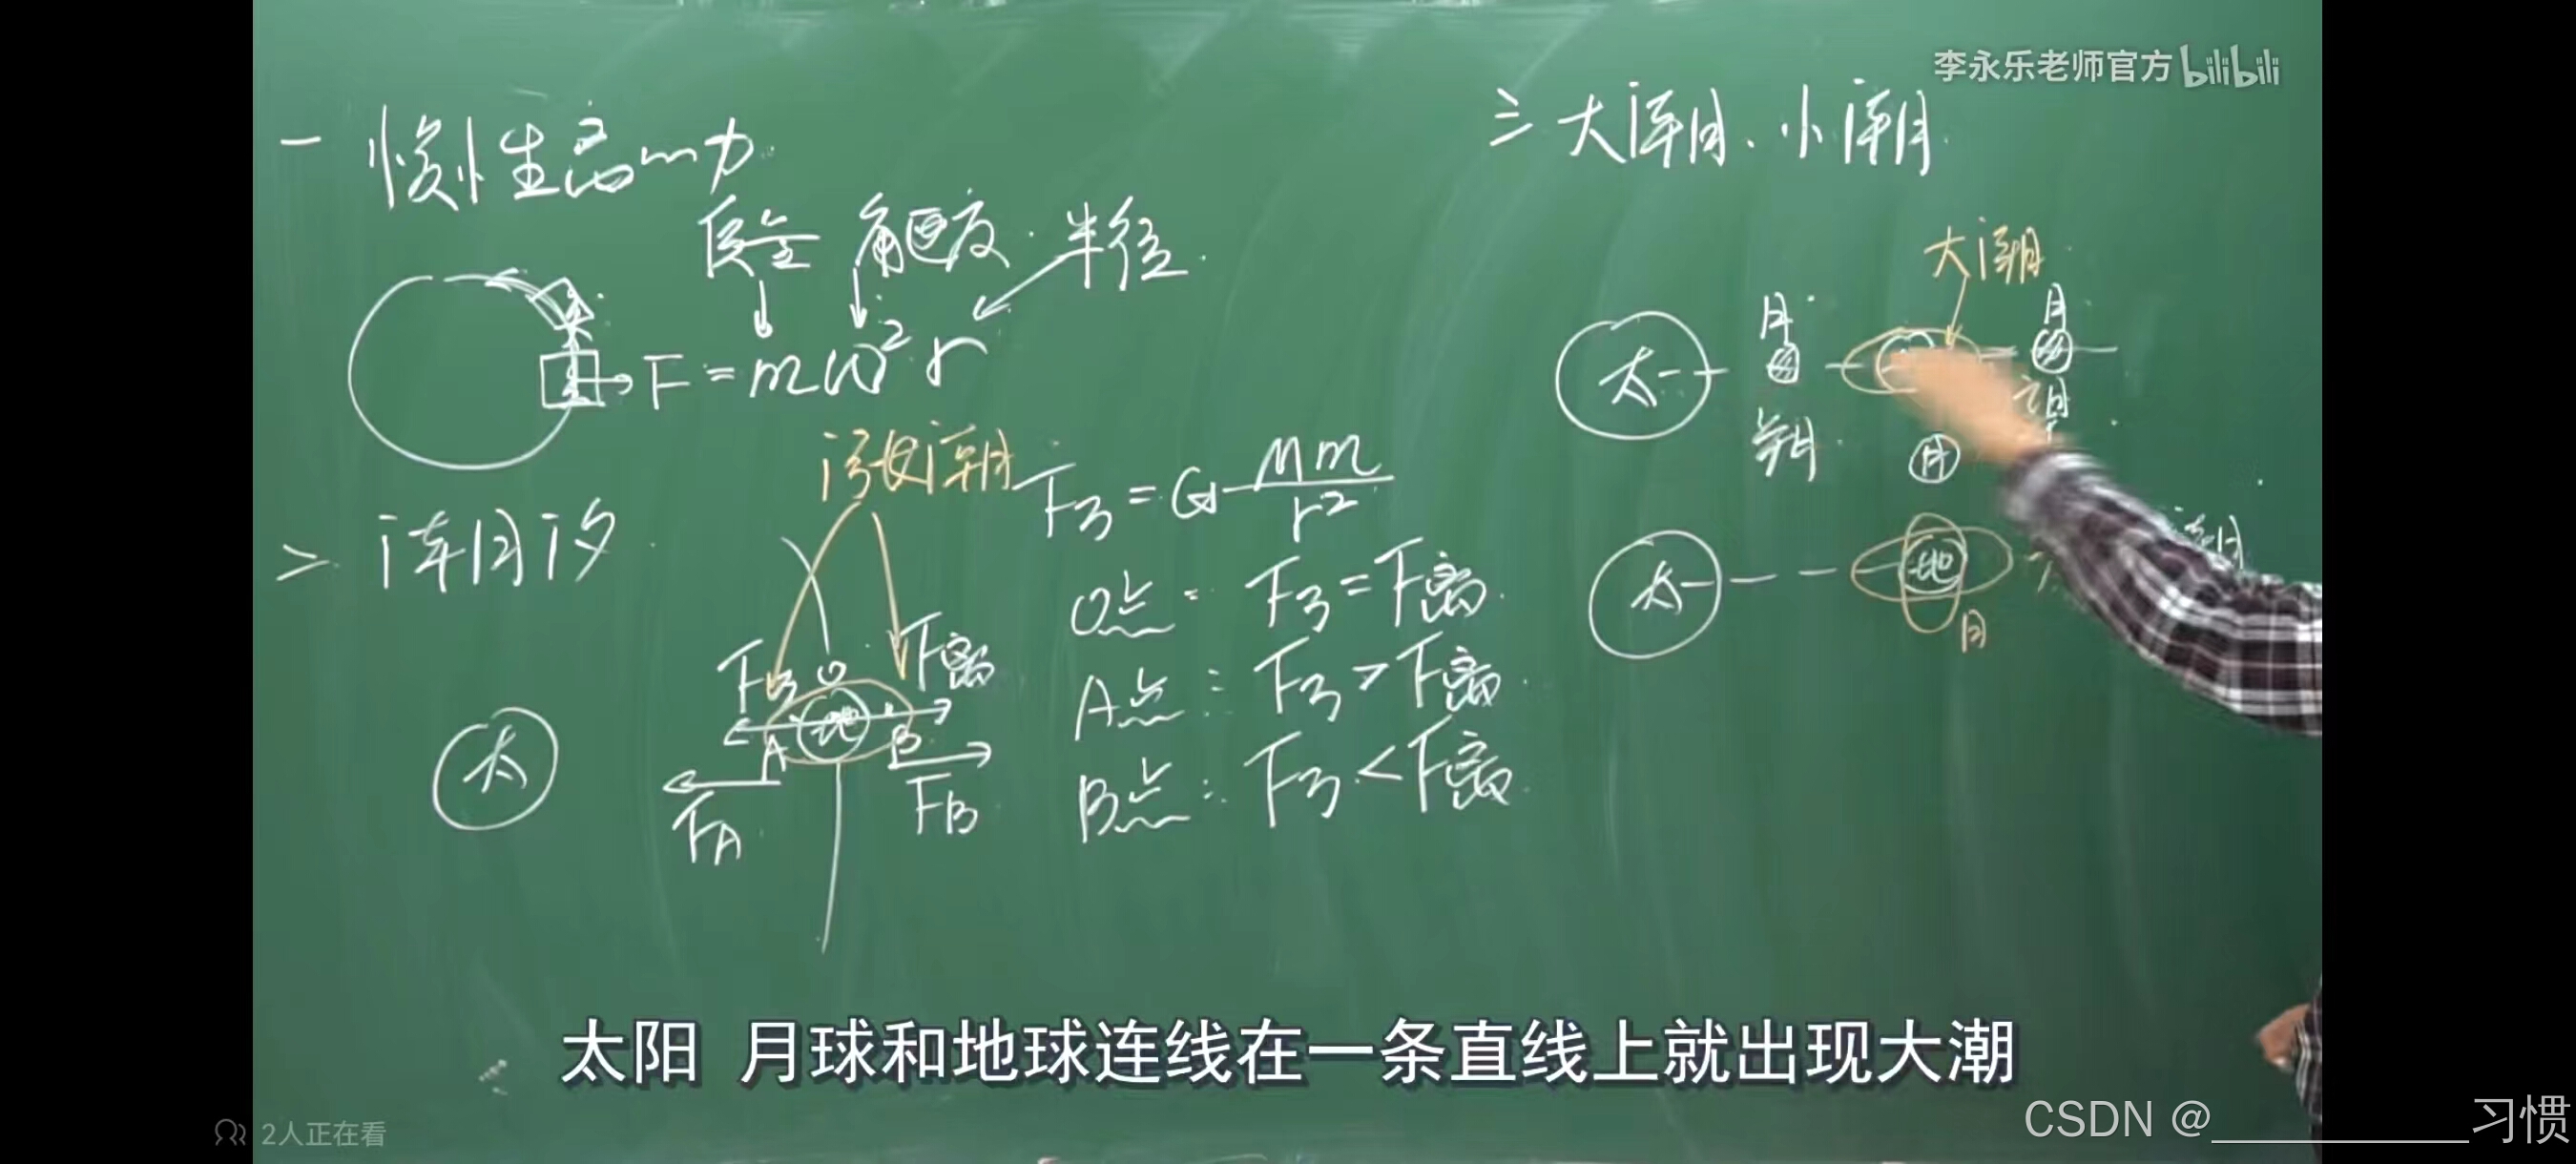 李永乐老师官方 bilibili
一 惯性离心力
质量 角速度 半径
F=mω²r
二 潮汐
涨潮
F引=G Mm/r²
O点: F引=F离
A点: F引>F离
B点: F引<F离
F引 O F离
太 地
A B
FA FB
三 大潮、小潮
大潮
月 月
太
朔 望
月
太 地
月
太阳 月球和地球连线在一条直线上就出现大潮
2人正在看
CSDN @__________习惯